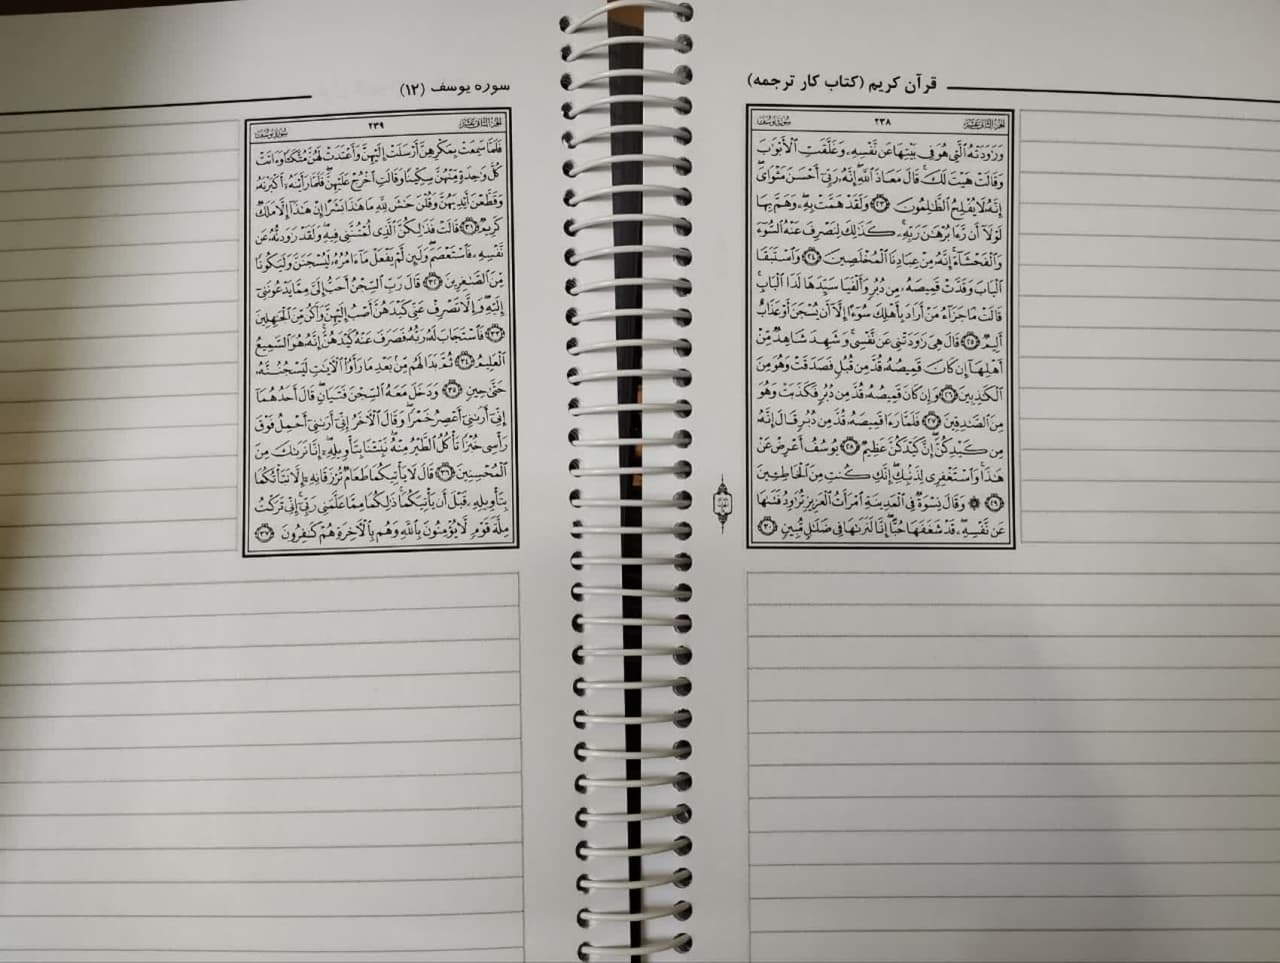 قرآن کریم (کتاب کار ترجمه)
الجزء الثاني عشر
٢٣٨
سورة يوسف
وَرَٰوَدَتْهُ ٱلَّتِى هُوَ فِى بَيْتِهَا عَن نَّفْسِهِۦ وَغَلَّقَتِ ٱلْأَبْوَٰبَ
وَقَالَتْ هَيْتَ لَكَ ۚ قَالَ مَعَاذَ ٱللَّهِ ۖ إِنَّهُۥ رَبِّىٓ أَحْسَنَ مَثْوَاىَ ۖ
إِنَّهُۥ لَا يُفْلِحُ ٱلظَّٰلِمُونَ ﴿٢٣﴾ وَلَقَدْ هَمَّتْ بِهِۦ ۖ وَهَمَّ بِهَا
لَوْلَآ أَن رَّءَا بُرْهَٰنَ رَبِّهِۦ ۚ كَذَٰلِكَ لِنَصْرِفَ عَنْهُ ٱلسُّوٓءَ
وَٱلْفَحْشَآءَ ۚ إِنَّهُۥ مِنْ عِبَادِنَا ٱلْمُخْلَصِينَ ﴿٢٤﴾ وَٱسْتَبَقَا
ٱلْبَابَ وَقَدَّتْ قَمِيصَهُۥ مِن دُبُرٍ وَأَلْفَيَا سَيِّدَهَا لَدَا ٱلْبَابِ ۚ
قَالَتْ مَا جَزَآءُ مَنْ أَرَادَ بِأَهْلِكَ سُوٓءًا إِلَّآ أَن يُسْجَنَ أَوْ عَذَابٌ
أَلِيمٌ ﴿٢٥﴾ قَالَ هِىَ رَٰوَدَتْنِى عَن نَّفْسِى ۚ وَشَهِدَ شَاهِدٌ مِّنْ
أَهْلِهَآ إِن كَانَ قَمِيصُهُۥ قُدَّ مِن قُبُلٍ فَصَدَقَتْ وَهُوَ مِنَ
ٱلْكَٰذِبِينَ ﴿٢٦﴾ وَإِن كَانَ قَمِيصُهُۥ قُدَّ مِن دُبُرٍ فَكَذَبَتْ وَهُوَ
مِنَ ٱلصَّٰدِقِينَ ﴿٢٧﴾ فَلَمَّا رَءَا قَمِيصَهُۥ قُدَّ مِن دُبُرٍ قَالَ إِنَّهُۥ
مِن كَيْدِكُنَّ ۖ إِنَّ كَيْدَكُنَّ عَظِيمٌ ﴿٢٨﴾ يُوسُفُ أَعْرِضْ عَنْ
هَٰذَا ۚ وَٱسْتَغْفِرِى لِذَنۢبِكِ ۖ إِنَّكِ كُنتِ مِنَ ٱلْخَاطِـِٔينَ
﴿٢٩﴾ ۞ وَقَالَ نِسْوَةٌ فِى ٱلْمَدِينَةِ ٱمْرَأَتُ ٱلْعَزِيزِ تُرَٰوِدُ فَتَىٰهَا
عَن نَّفْسِهِۦ ۖ قَدْ شَغَفَهَا حُبًّا ۖ إِنَّا لَنَرَىٰهَا فِى ضَلَٰلٍ مُّبِينٍ ﴿٣٠﴾
سوره یوسف (۱۲)
الجزء الثاني عشر
٢٣٩
سورة يوسف
فَلَمَّا سَمِعَتْ بِمَكْرِهِنَّ أَرْسَلَتْ إِلَيْهِنَّ وَأَعْتَدَتْ لَهُنَّ مُتَّكَـًٔا وَءَاتَتْ
كُلَّ وَٰحِدَةٍ مِّنْهُنَّ سِكِّينًا وَقَالَتِ ٱخْرُجْ عَلَيْهِنَّ ۖ فَلَمَّا رَأَيْنَهُۥٓ أَكْبَرْنَهُۥ
وَقَطَّعْنَ أَيْدِيَهُنَّ وَقُلْنَ حَٰشَ لِلَّهِ مَا هَٰذَا بَشَرًا إِنْ هَٰذَآ إِلَّا مَلَكٌ
كَرِيمٌ ﴿٣١﴾ قَالَتْ فَذَٰلِكُنَّ ٱلَّذِى لُمْتُنَّنِى فِيهِ ۖ وَلَقَدْ رَٰوَدتُّهُۥ عَن
نَّفْسِهِۦ فَٱسْتَعْصَمَ ۖ وَلَئِن لَّمْ يَفْعَلْ مَآ ءَامُرُهُۥ لَيُسْجَنَنَّ وَلَيَكُونًا
مِّنَ ٱلصَّٰغِرِينَ ﴿٣٢﴾ قَالَ رَبِّ ٱلسِّجْنُ أَحَبُّ إِلَىَّ مِمَّا يَدْعُونَنِىٓ
إِلَيْهِ ۖ وَإِلَّا تَصْرِفْ عَنِّى كَيْدَهُنَّ أَصْبُ إِلَيْهِنَّ وَأَكُن مِّنَ ٱلْجَٰهِلِينَ
﴿٣٣﴾ فَٱسْتَجَابَ لَهُۥ رَبُّهُۥ فَصَرَفَ عَنْهُ كَيْدَهُنَّ ۚ إِنَّهُۥ هُوَ ٱلسَّمِيعُ
ٱلْعَلِيمُ ﴿٣٤﴾ ثُمَّ بَدَا لَهُم مِّنۢ بَعْدِ مَا رَأَوُا۟ ٱلْءَايَٰتِ لَيَسْجُنُنَّهُۥ
حَتَّىٰ حِينٍ ﴿٣٥﴾ وَدَخَلَ مَعَهُ ٱلسِّجْنَ فَتَيَانِ ۖ قَالَ أَحَدُهُمَآ
إِنِّىٓ أَرَىٰنِىٓ أَعْصِرُ خَمْرًا ۖ وَقَالَ ٱلْءَاخَرُ إِنِّىٓ أَرَىٰنِىٓ أَحْمِلُ فَوْقَ
رَأْسِى خُبْزًا تَأْكُلُ ٱلطَّيْرُ مِنْهُ ۖ نَبِّئْنَا بِتَأْوِيلِهِۦٓ ۖ إِنَّا نَرَىٰكَ مِنَ
ٱلْمُحْسِنِينَ ﴿٣٦﴾ قَالَ لَا يَأْتِيكُمَا طَعَامٌ تُرْزَقَانِهِۦٓ إِلَّا نَبَّأْتُكُمَا
بِتَأْوِيلِهِۦ قَبْلَ أَن يَأْتِيَكُمَا ۚ ذَٰلِكُمَا مِمَّا عَلَّمَنِى رَبِّىٓ ۚ إِنِّى تَرَكْتُ
مِلَّةَ قَوْمٍ لَّا يُؤْمِنُونَ بِٱللَّهِ وَهُم بِٱلْءَاخِرَةِ هُمْ كَٰفِرُونَ ﴿٣٧﴾